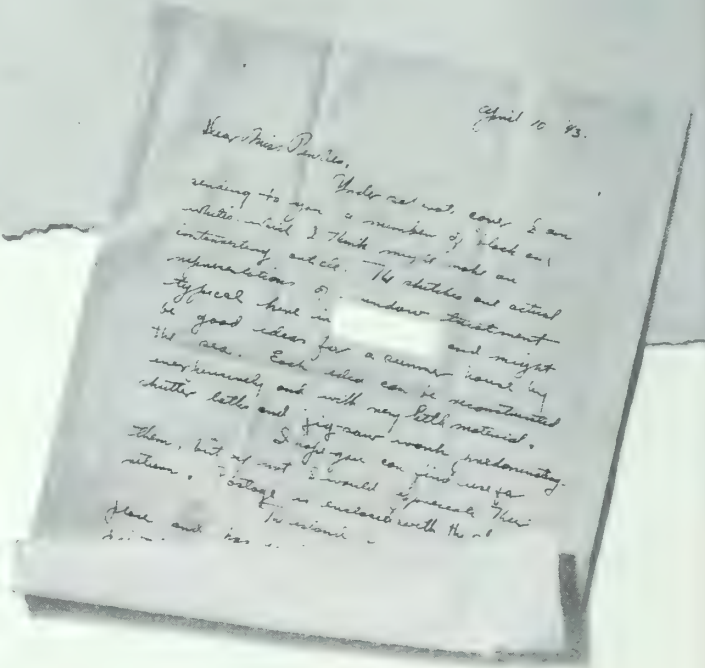 April 10 '43.
Dear Miss
Under cover I am
sending to you a number of black and
whites which I think might make an
interesting article. The sketches are actual
representations of window treatment
typical here in and might
be good ideas for a summer house by
the sea. Each idea can be reconstructed
inexpensively and with very little material,
shutter laths and jig-saw work predominating.
I hope you can find use for
them, but if not I would appreciate their
return. Postage is enclosed with the
The island
place and has